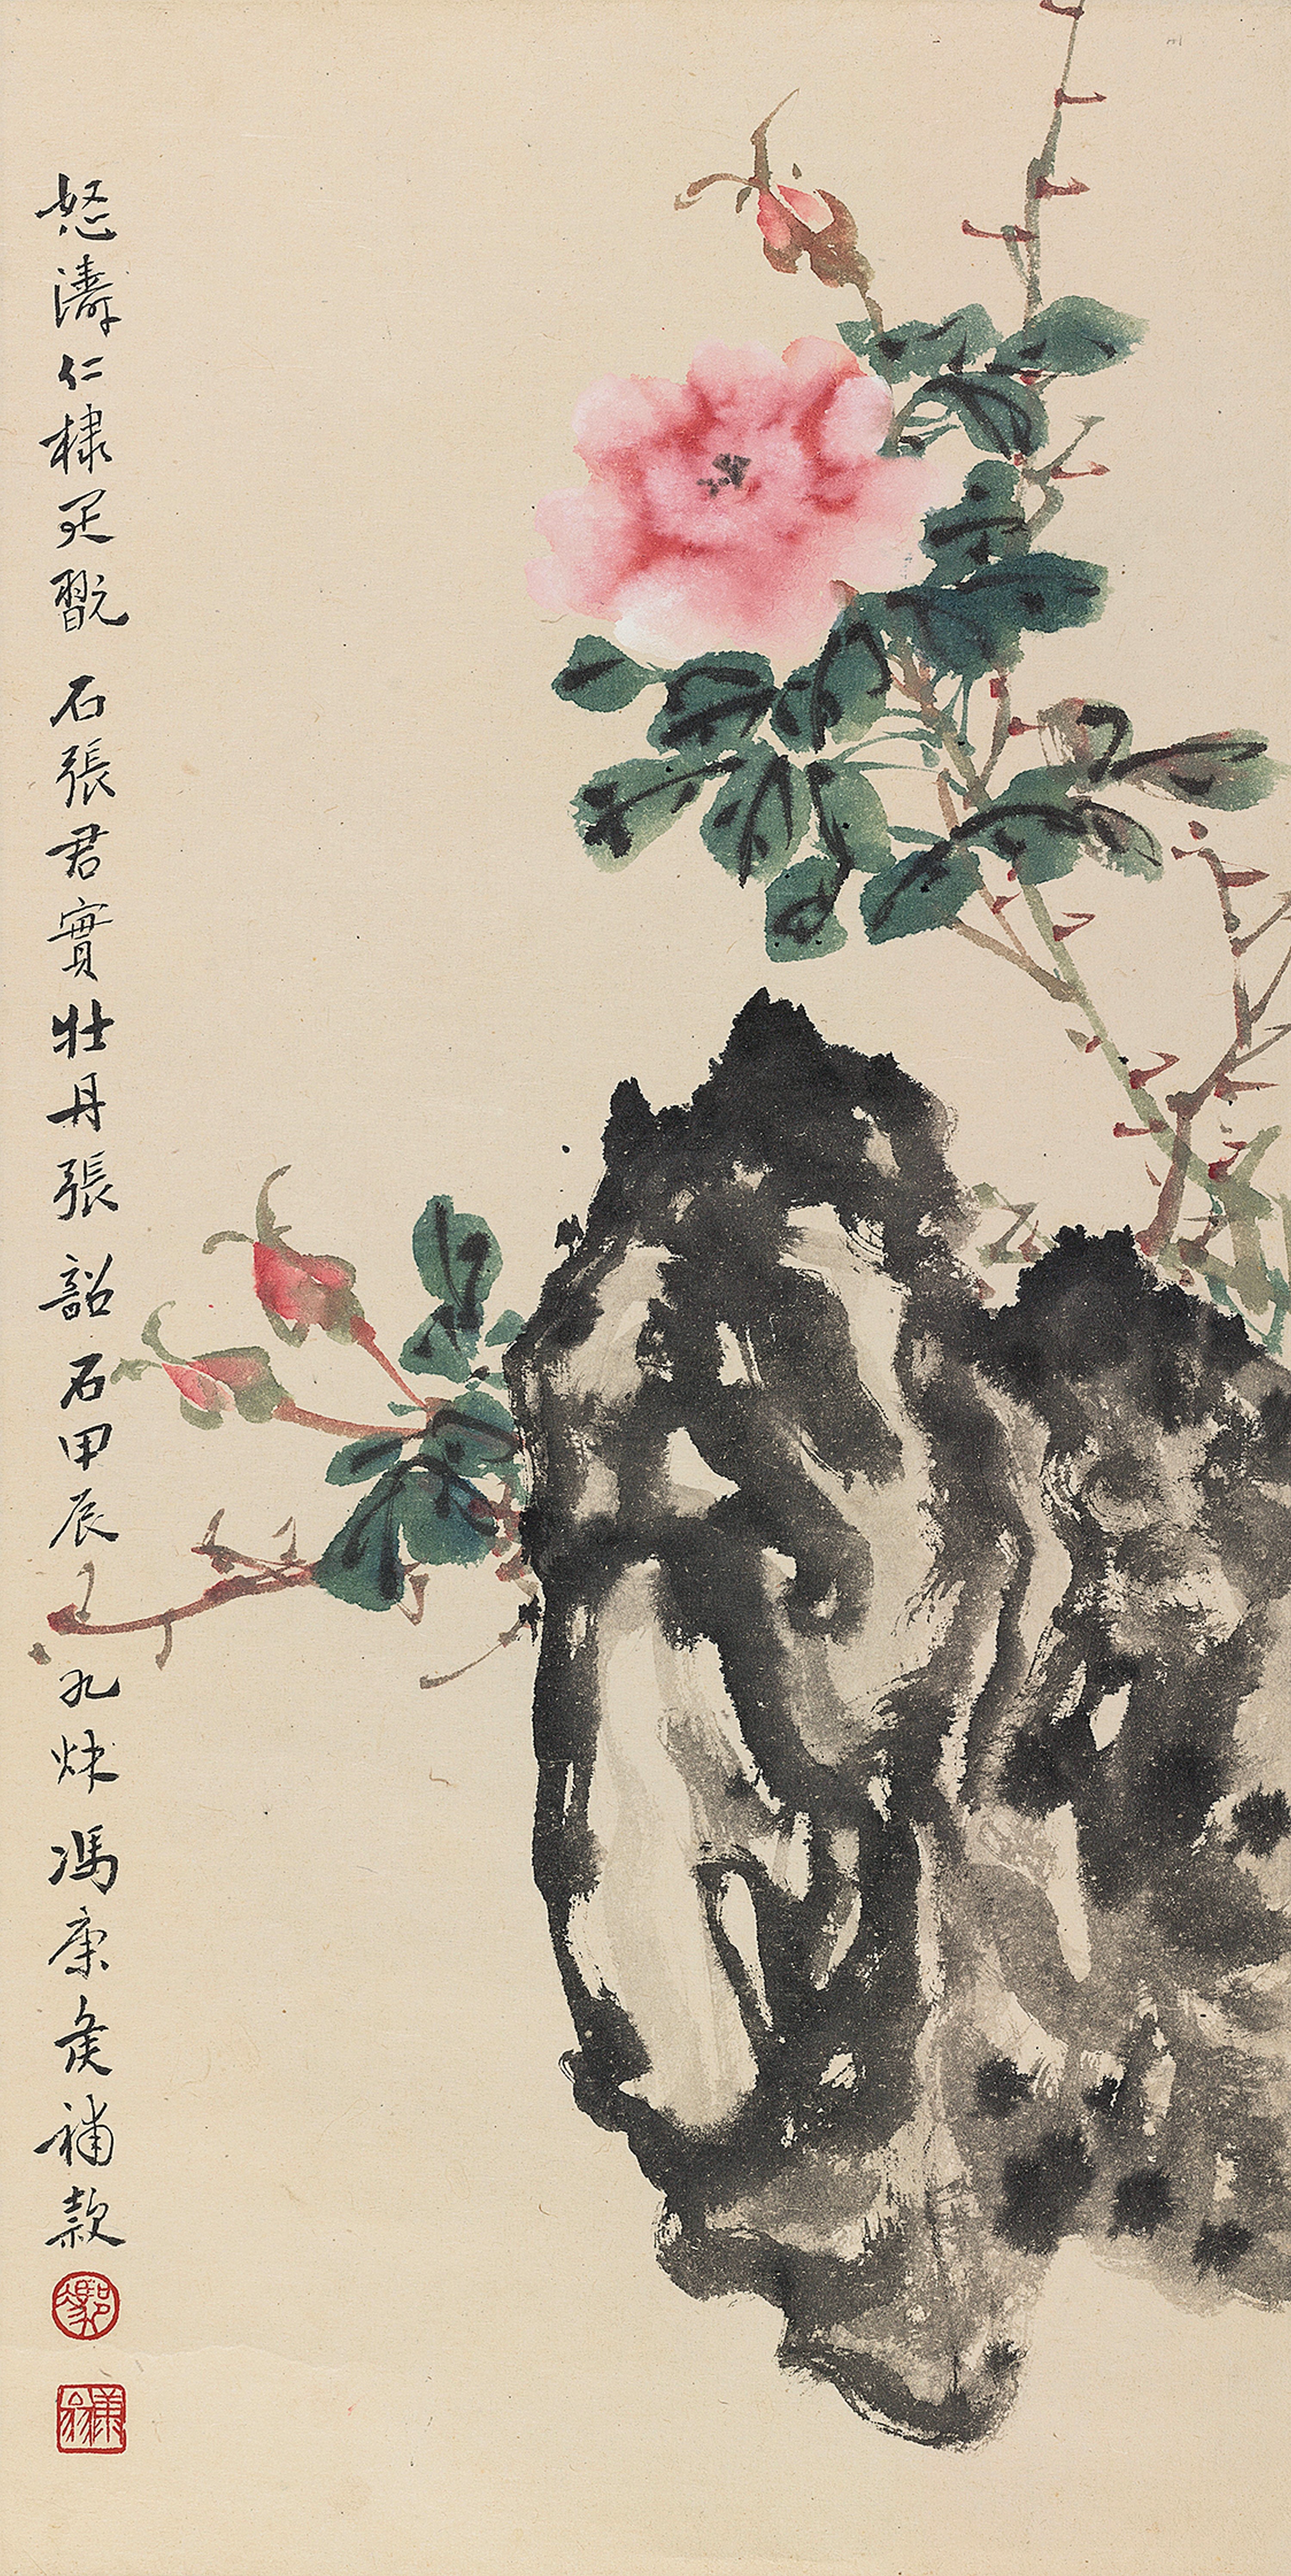 怒濤仁棣疋翫 石張君實牡丹張韶石甲辰九秌馮康矦補款